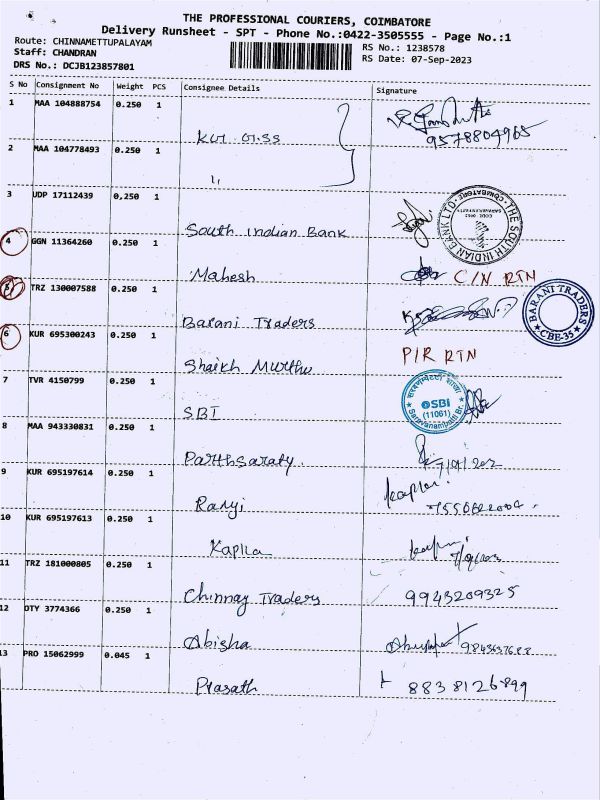 THE PROFESSIONAL COURIERS, COIMBATORE
Delivery Runsheet - SPT - Phone No.:0422-3505555 - Page No.:1
Route: CHINNAMETTUPALAYAM
RS No.: 1238578
Staff: CHANDRAN
RS Date: 07-Sep-2023
DRS No.: DCJB123857801
S No Consignment No Weight PCS Consignee Details Signature
1 MAA 104888754 0.250 1
9578804965
2 MAA 104778493 0.250 1
3 UDP 17112439 0.250 1
South Indian Bank
THE SOUTH INDIAN BANK LTD. COIMBATORE
4 GGN 11364260 0.250 1
Mahesh C/N RTN
5 TRZ 130007588 0.250 1
Barani Traders
BARANI TRADERS CBE-35
6 KUR 695300243 0.250 1
Shaikh Murthu P/R RTN
7 TVR 4150799 0.250 1
SBI
SBI
(11061)
Saravanampatti Br.
8 MAA 943330831 0.250 1
Parthsaraty
9 KUR 695197614 0.250 1
Ranji
10 KUR 695197613 0.250 1
Kapila
11 TRZ 181000805 0.250 1
Chinnay Traders 9943209325
12 OTY 3774366 0.250 1
Abisha
13 PRO 15062999 0.045 1
Prasath 8838126899